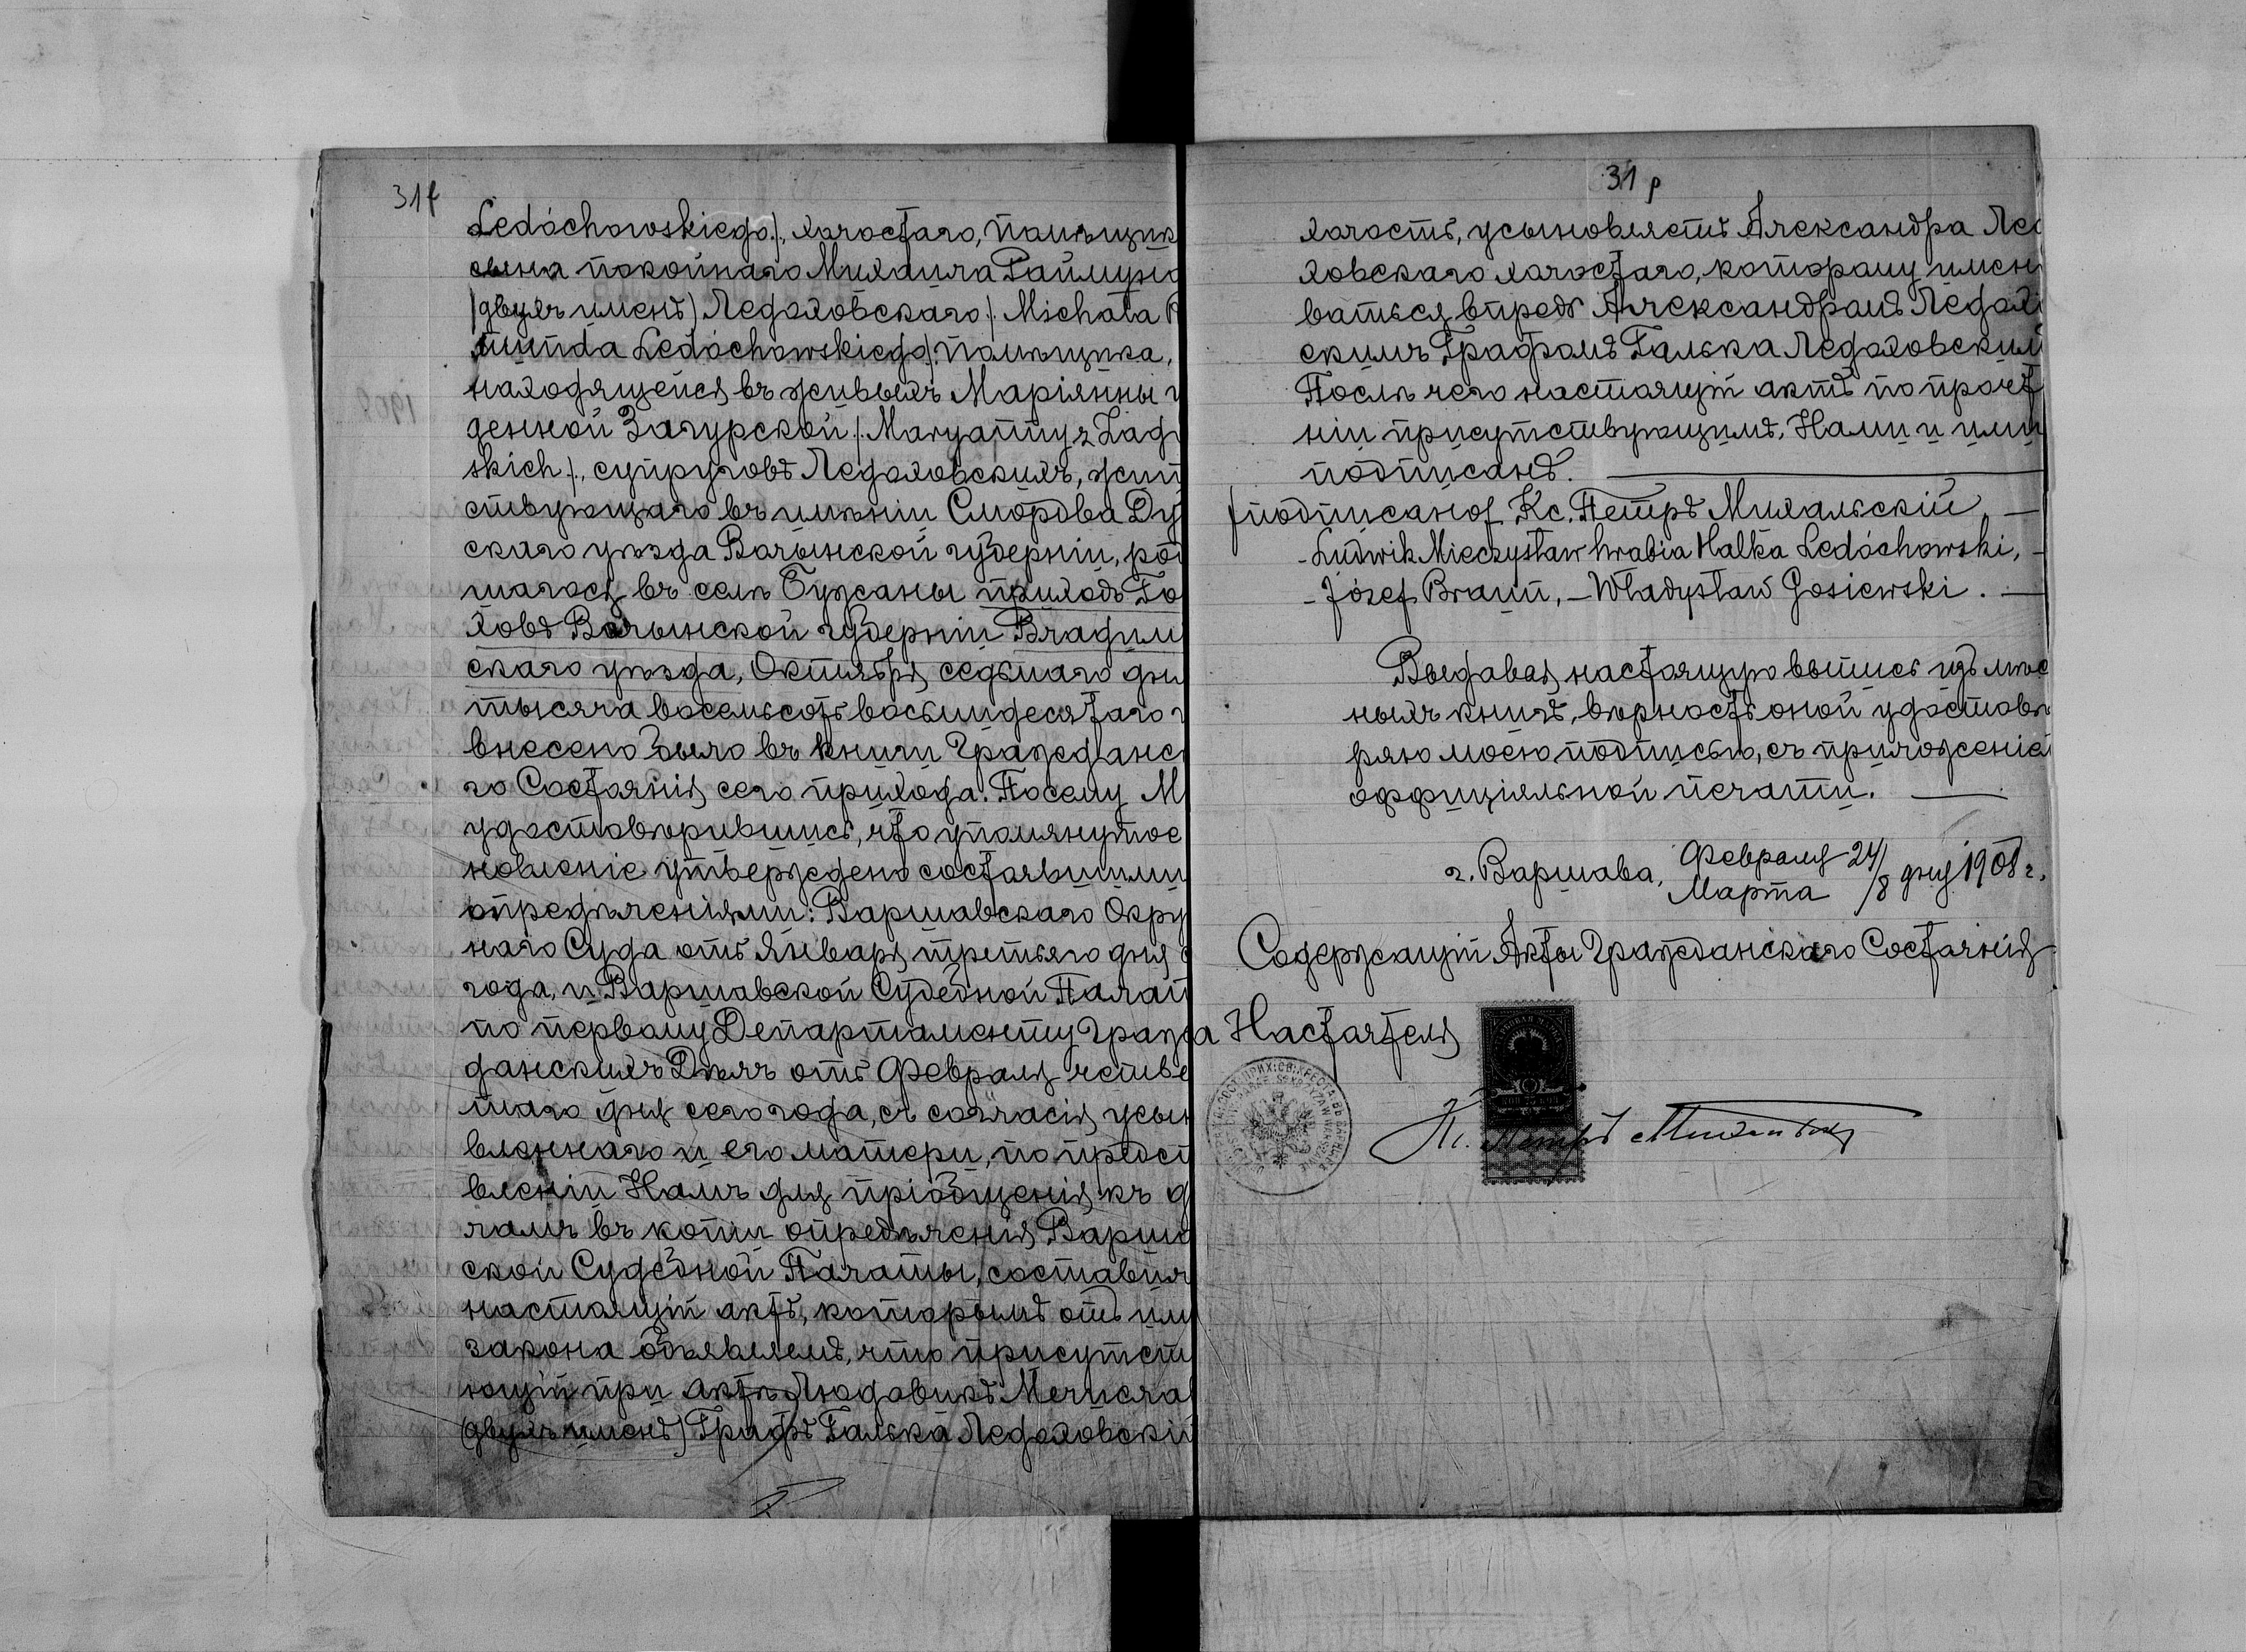 31f
Ledóchowskiego/., холостаго, помѣщик
сына покойнаго Михаила Раймунд
/двухъ именъ) Ледоховскаго /. Michała R
munda Ledóchowskiego/. помѣщика,
находящейся въ живыхъ Маріянны
денной Загурской /. Maryanny z Zagr
skich /., супруговъ Ледоховскихъ, жит
ствующаго въ имѣніи Смордва Ду
скаго уѣзда Волынской губерніи, род
шагося въ селѣ Бужаны приходъ Го
ховъ Волынской губерніи Владим
скаго уѣзда, Октября седьмаго дня
тысяча восемьсотъ восьмидесятаго г
внесено было въ книги Гражданс
го Состоянія сего прихода. Посему М
удостовѣрившись, что упомянутое
новленіе утверждено состоявшими
опредѣленіями: Варшавскаго Окру
наго Суда отъ Января третьяго дня
года, и Варшавской Судебной Палат
по первому Департаменту Граж
данскихъ Дѣлъ отъ Февраля четве
таго дня сего года, съ согласія усын
вленнаго и его матери, по предст
вленіи Намъ для пріобщенія къ д
ламъ въ копіи опредѣленія Варша
ской Судебной Палаты, составил
настоящій актъ, которымъ отъ им
закона объявляемъ, что присутств
ющій при актѣ Людовикъ Мечисла
(двухъ именъ) Графъ Галька Ледоховскій
31 p
холостъ, усыновляетъ Александра Лед
ховскаго холостаго, которому имен
ваться впредь Александромъ Ледох
скимъ Графомъ Галька Ледоховским
Послѣ чего настоящій актъ по прочт
ніи присутствующимъ, Нами и ими
подписанъ.
/подписано/ Кс. Петръ Михальскій, —
- Ludwik Mieczysław hrabia Halka Ledóchowski, -
- Józef Braun, — Władysław Gosiewski. —
Выдавая настоящую выпись изъ мѣс
ныхъ книгъ, вѣрность оной удостовѣ
ряю моею подписью, съ приложеніем
оффиціяльной печати. —
г. Варшава, Февраля 24/
Марта /8 дня 1908 г.
Содержащій Акты Гражданскаго Состоянія
Настоятель
Кс. Петръ Михальскій